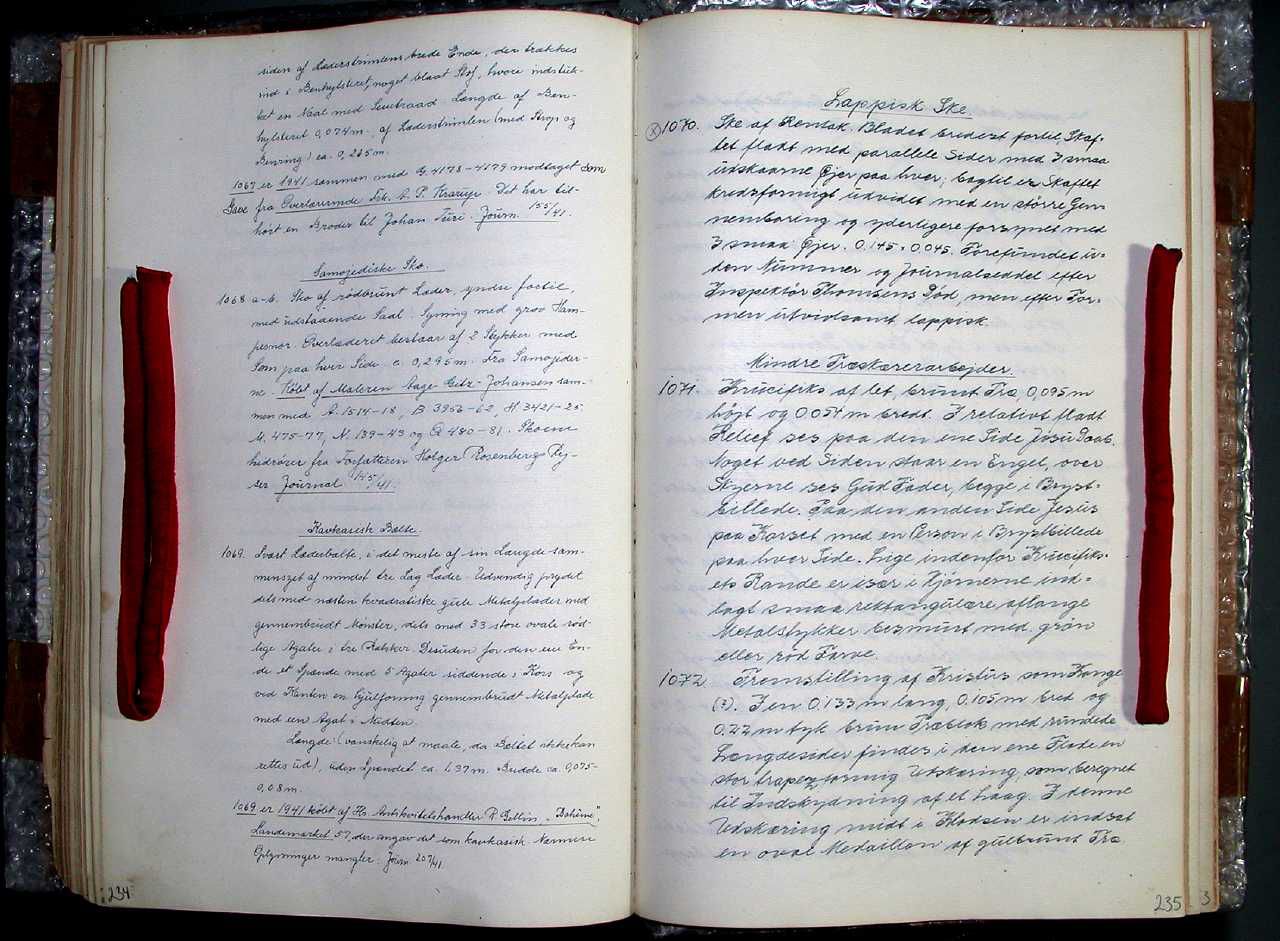 siden af Læderstrimlens brede Ende, der trækkes
ind i Benhylsteret, noget blaat Stof, hvori indstuk-
ket en Naal med Senetraad. Længde af Ben-
hylsteret 0,074 m., af Læderstrimlen (med Strop og
Benring) ca. 0,265 m.
1067 er 1941 sammen med G. 4178-4179 modtaget som
Gave fra Overlærerinde Frk. C. P. Krarup. Det har til-
hørt en Broder til Johan Turi. Journ. 155/41.
Samojediske Sko.
1068 a-b. Sko af rødbrunt Læder, yndre foetil,
med udstaaende Saal. Syning med grov Ham-
pesnor. Overlæderet bestaar af 2 Stykker med
Søm paa hver Side. c. 0,295 m. Fra Samojeder-
ne. Købt af Maleren Aage Gitz-Johansen sam-
men med A. 1514-18, B 3953-62, H. 3421-25.
M. 475-77, N. 139-43 og Q 480-81. Skoene
hidrører fra Forfatteren Holger Rosenbergs Rej-
ser. Journal 145/41.
Kavkasisk Bælte.
1069. Svært Læderbælte, i det meste af sin Længde sam-
mensyet af mindst tre Lag Læder. Udvendig prydet
dels med næsten kvadratiske gule Metalplader med
gennembrudt Mønster, dels med 33 store ovale rød-
lige Agater i tre Rækker. Desuden for den ene En-
de et Spænde med 5 Agater siddende i Kors og
ved Kanten en Gulforming gennembrudt Metalplade
med een Agat i Midten.
Længde (vanskelig at maale, da Bæltet ikke kan
rettes ud), uden Spændet ca. 1,37 m. Bredde ca. 0,075-
0,08 m.
1069 er 1941 købt af Hr. Antikvitetshandler R. Gellin, "Bohême",
Landemærket 57, der angav det som kavkasisk. Nærmere
Oplysninger mangler. Journ. 207/41.
234
Lappisk Ske.
(x) 1070. Ske af Rentak. Bladet bredest fortil, Skaf-
tet fladt med parallele Sider med 3 smaa
udskaarne Øjer paa hver; bagtil er Skaftet
kredsformigt udvidet med en større Gen-
nemboring og yderligere forsynet med
3 smaa Øjer. 0.145 × 0.045. Forefundet u-
den Nummer og Journalseddel efter
Inspektør Thomsens Død, men efter For-
men utvivlsomt lappisk.
Mindre Træskærerarbejder.
1071. Krucifiks af let, brunt Træ 0,095 m
højt og 0.054 m bredt. I relativt fladt
Relief ses paa den ene Side Jesu Daab.
Noget ved Siden staar en Engel, over
Skyerne ses Gud Fader, begge i Bryst-
billede. Paa den anden Side Jesus
paa Korset med en Person i Brystbillede
paa hver Side. Lige indenfor Krucifiks-
ets Rande er især i Hjørnerne ind-
lagt smaa rektangulære aflange
Metalstykker besmurt med grøn
eller rød Farve.
1072. Fremstilling af Kristus som Konge
(?). I en 0.133 m lang, 0.105 m bred og
0.22 m tyk brun Træblok med rundede
Længdesider findes i den ene Flade en
stor trapezformig Udskæring, som beregnet
til Indskydning af et Laag. I denne
Udskæring midt i Klodsen er indsat
en oval Medaillon af gulbrunt Træ
235
3